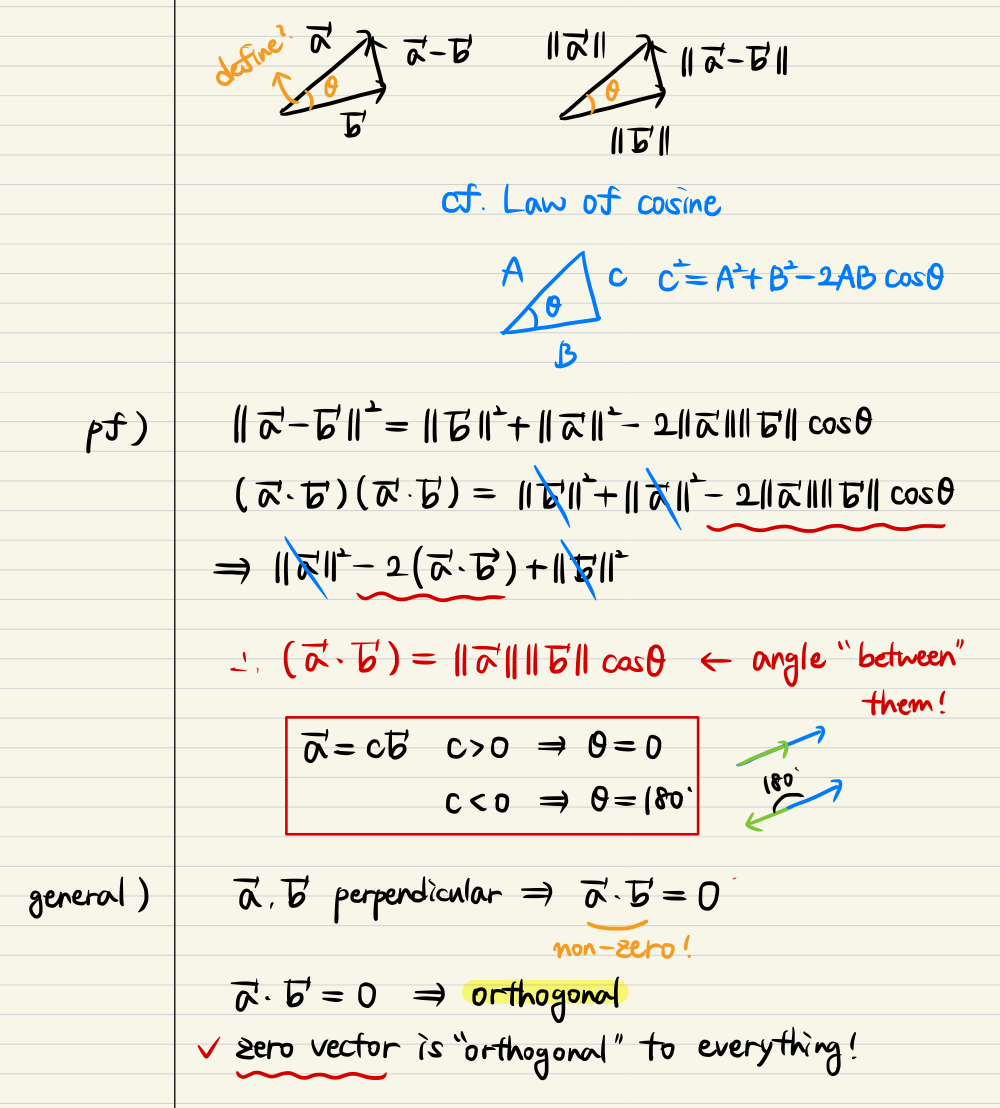 define?
a⃗ a⃗-b⃗ θ b⃗
||a⃗|| ||a⃗-b⃗|| θ ||b⃗||
cf. Law of cosine
A θ B C C²=A²+B²-2ABcosθ
pf) ||a⃗-b⃗||² = ||b⃗||²+||a⃗||²-2||a⃗||||b⃗||cosθ
(a⃗·b⃗)(a⃗·b⃗) = ||b⃗||²+||a⃗||²-2||a⃗||||b⃗||cosθ
⇒ ||a⃗||²-2(a⃗·b⃗)+||b⃗||²
∴ (a⃗·b⃗) = ||a⃗||||b⃗||cosθ ← angle "between"
them!
a⃗=cb⃗ c>0 ⇒ θ=0
c<0 ⇒ θ=180°
180°
general) a⃗, b⃗ perpendicular ⇒ a⃗·b⃗=0
non-zero!
a⃗·b⃗=0 ⇒ orthogonal
✓ zero vector is "orthogonal" to everything!